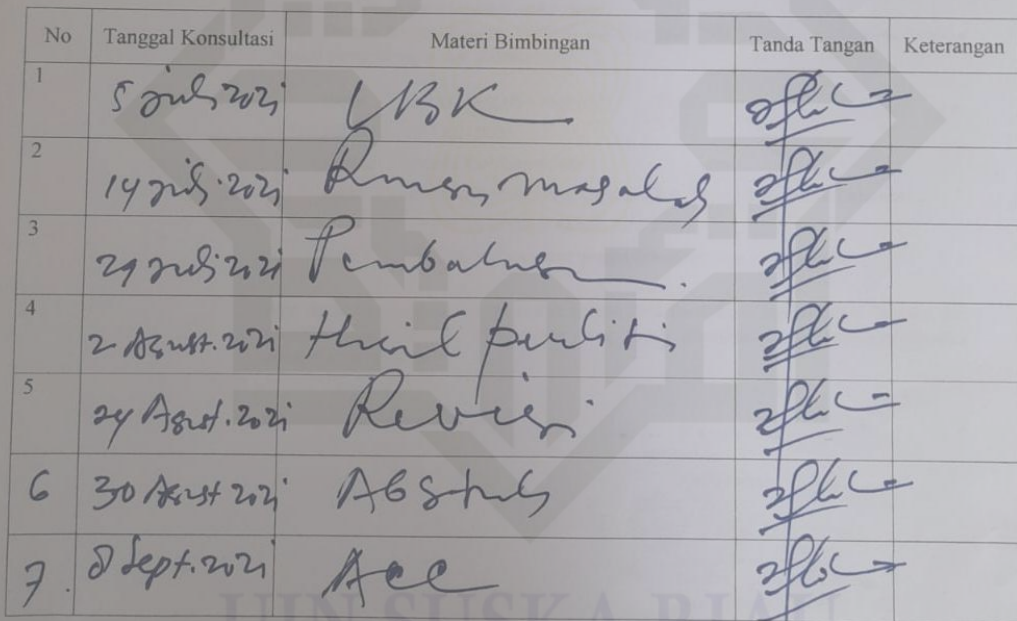 No Tanggal Konsultasi Materi Bimbingan Tanda Tangan Keterangan
1 5 Juli 2021
2 14 Juli 2021 Rumusan masalah
3 29 Juli 2021 Pembahasan
4 2 Agust. 2021 Hasil peneliti
5 24 Agust. 2021 Revisi
6 30 Agust 2021 Abstrak
7. 8 Sept. 2021 Acc
UIN SUSKA RIAU